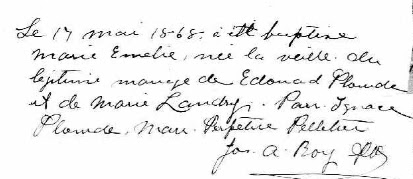 Le 17 mai 1868. a été baptisée
Marie Emelie, née la veille du
légitime mariage de Edouad Plourde
et de Marie Landry. Parr. Ignace
Plourde, Marr. Perpetue Pelletier
Jos. A. Roy